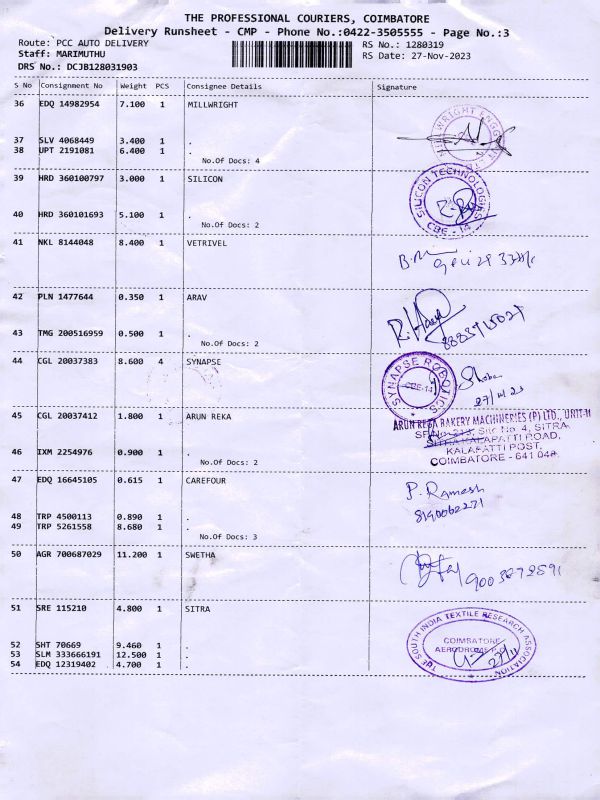 THE PROFESSIONAL COURIERS, COIMBATORE
Delivery Runsheet - CMP - Phone No.:0422-3505555 - Page No.:3
Route: PCC AUTO DELIVERY RS No.: 1280319
Staff: MARIMUTHU RS Date: 27-Nov-2023
DRS No.: DCJB128031903
S No Consignment No Weight PCS Consignee Details Signature
36 EDQ 14982954 7.100 1 MILLWRIGHT
37 SLV 4068449 3.400 1 .
38 UPT 2191081 6.400 1 .
No.Of Docs: 4
39 HRD 360100797 3.000 1 SILICON
SILICON TECHNOLOGIES
CBE - 14
40 HRD 360101693 5.100 1 .
No.Of Docs: 2
41 NKL 8144048 8.400 1 VETRIVEL
42 PLN 1477644 0.350 1 ARAV
43 TMG 200516959 0.500 1 .
No.Of Docs: 2
44 CGL 20037383 8.600 4 SYNAPSE
SYNAPSE ROBOTICS
CBE-14
45 CGL 20037412 1.800 1 ARUN REKA
ARUN REKA BAKERY MACHINERIES (P) LTD., UNIT-II
SF No. 213, Site No 4, SITRA,
SITRA KALAPATTI ROAD,
KALAPATTI POST,
COIMBATORE - 641 048.
46 IXM 2254976 0.900 1 .
No.Of Docs: 2
47 EDQ 16645105 0.615 1 CAREFOUR
P. Ramesh
48 TRP 4500113 0.890 1 .
49 TRP 5261558 8.680 1 .
No.Of Docs: 3
50 AGR 700687029 11.200 1 SWETHA
51 SRE 115210 4.800 1 SITRA
THE SOUTH INDIA TEXTILE RESEARCH ASSOCIATION
COIMBATORE
AERODROME P.O
27/11
52 SHT 70669 9.460 1 .
53 SLM 333666191 12.500 1 .
54 EDQ 12319402 4.700 1 .